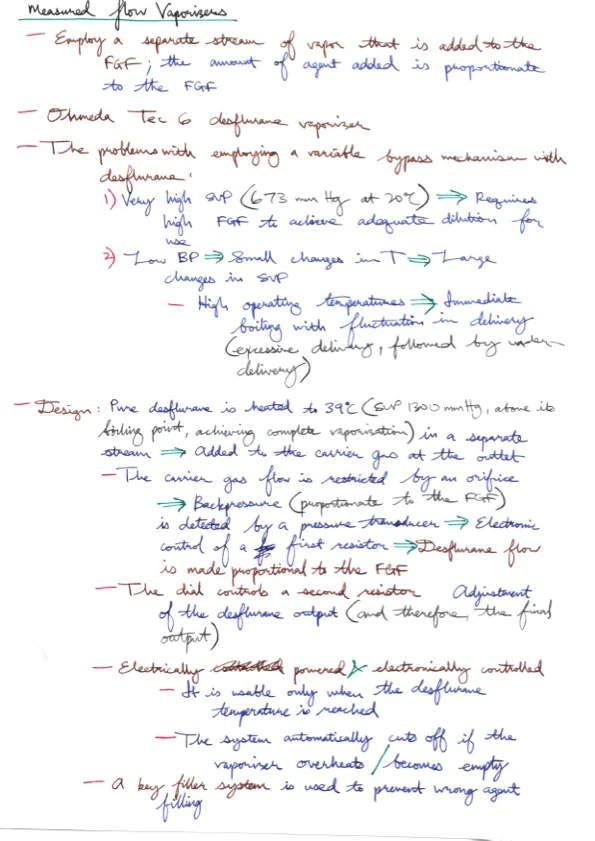 Measured flow Vaporizers
— Employ a separate stream of vapor that is added to the
FGF; the amount of agent added is proportionate
to the FGF
— Ohmeda Tec 6 desflurane vaporizer
— The problems with employing a variable bypass mechanism with
desflurane:
1) Very high SVP (673 mm Hg at 20°C) ⇒ Requires
high FGF to achieve adequate dilution for
use
2) Low BP ⇒ Small changes in T ⇒ Large
changes in SVP
— High operating temperatures ⇒ Immediate
boiling with fluctuation in delivery
(excessive delivery, followed by under-
delivery)
— Design: Pure desflurane is heated to 39°C (SVP 1300 mmHg, above its
boiling point, achieving complete vaporisation) in a separate
stream ⇒ Added to the carrier gas at the outlet
— The carrier gas flow is restricted by an orifice
⇒ Backpressure (proportionate to the FGF)
is detected by a pressure transducer ⇒ Electronic
control of a first resistor ⇒ Desflurane flow
is made proportional to the FGF
— The dial controls a second resistor Adjustment
of the desflurane output (and therefore, the final
output)
— Electrically powered, electronically controlled
— It is usable only when the desflurane
temperature is reached
— The system automatically cuts off if the
vaporiser overheats / becomes empty
— A key filler system is used to prevent wrong agent
filling